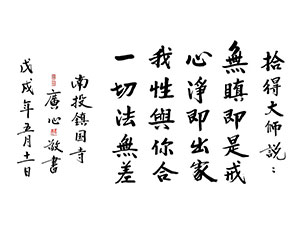 拾得大师說：
無瞋即是戒
心淨即出家
我性與你合
一切法無差
南投鎮國寺
廣心敬書
戊戌年五月十一日